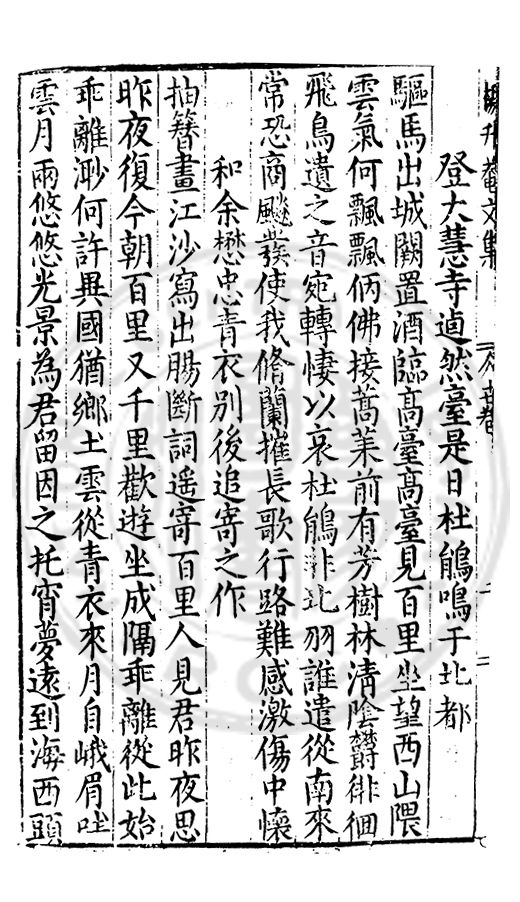 升菴文集
登大慧寺逌然臺是日杜鵑鳴于北都
驅馬出城闕置酒臨高臺高臺見百里坐望西山隈
雲氣何飄飄俩佛接蒿萊前有芳樹林清陰欝徘徊
飛鳥遺之音宛轉悽以哀杜鵑非北羽誰遣從南來
常恐商飈發使我脩蘭摧長歌行路難感激傷中懷
和余懋忠青衣別後追寄之作
抽簪畫江沙寫出腸斷詞遥寄百里人見君昨夜思
昨夜復今朝百里又千里歡遊坐成隔乖離從此始
乖離渺何許異國猶鄉土雲從青衣來月自峨眉吐
雲月兩悠悠光景為君留因之托宵夢遠到海西頭